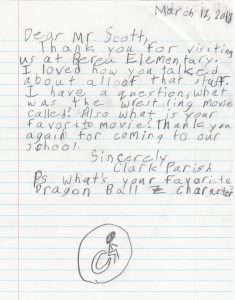 March 12, 201
Dear Mr. Scott,
Thank you for visiting
us at Berea Elementary.
I loved how you talked
about all of that stuff.
I have a question, what
was the wrestling movie
called? Also what is your
favorite movie? Thank you
again for coming to our
school.
Sincerely
Clark Parish
Ps what's your favorite
Dragon Ball Z character